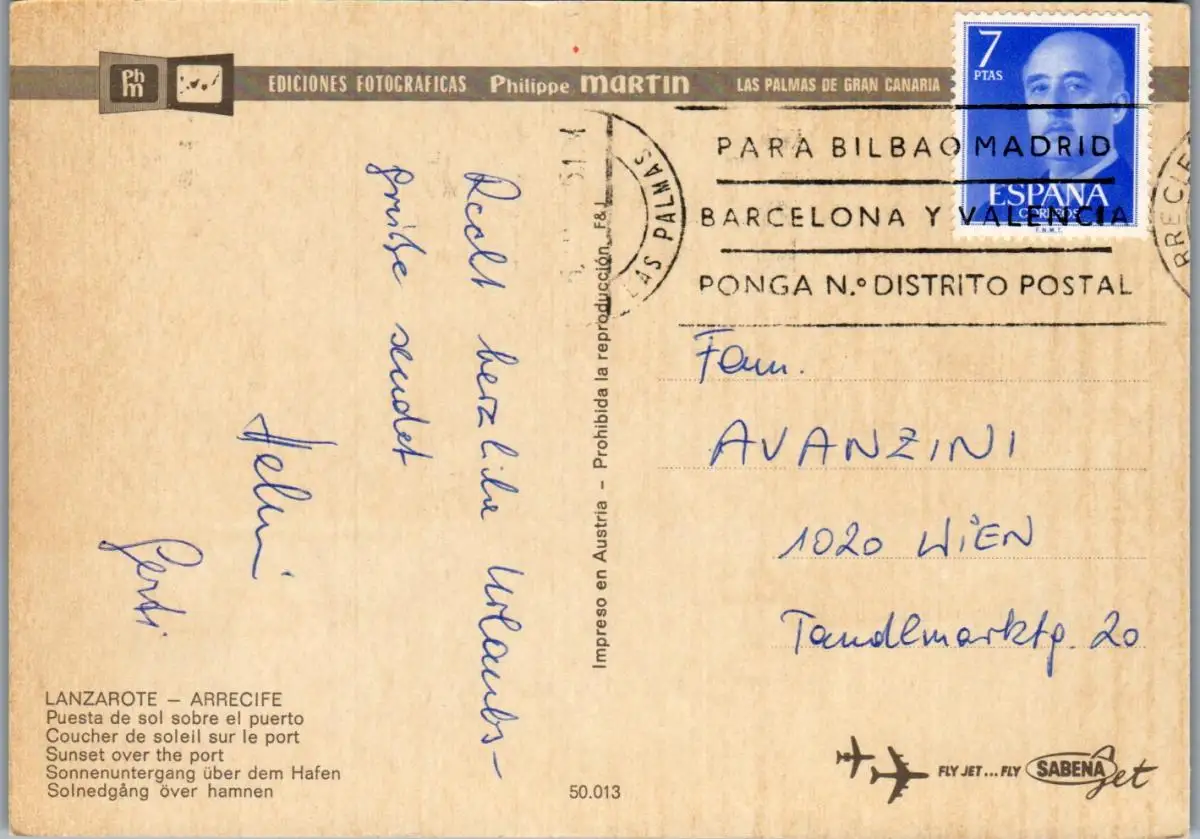 Ph
m
EDICIONES FOTOGRAFICAS Philippe MARTIN LAS PALMAS DE GRAN CANARIA
7
PTAS
ESPAÑA
CORREOS
F.N.M.T.
LAS PALMAS
PARA BILBAO MADRID
BARCELONA Y VALENCIA
PONGA N.º DISTRITO POSTAL
RRECIFE
Recht herzliche Urlaubs-
grüße sendet
Helmi
Gerti
Impreso en Austria – Prohibida la reproducción F&J
Fam.
AVANZINI
1020 WIEN
Tandlmarktg. 20
LANZAROTE – ARRECIFE
Puesta de sol sobre el puerto
Coucher de soleil sur le port
Sunset over the port
Sonnenuntergang über dem Hafen
Solnedgång över hamnen
50.013
FLY JET...FLY SABENA Jet